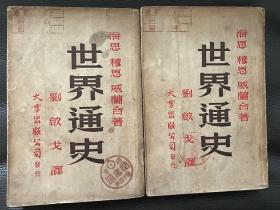 海思 穆恩 威蘭合著
世界通史
劉啟戈譯
大孚出版公司發行
海思 穆恩 威蘭合著
世界通史
劉啟戈譯
大孚出版公司發行